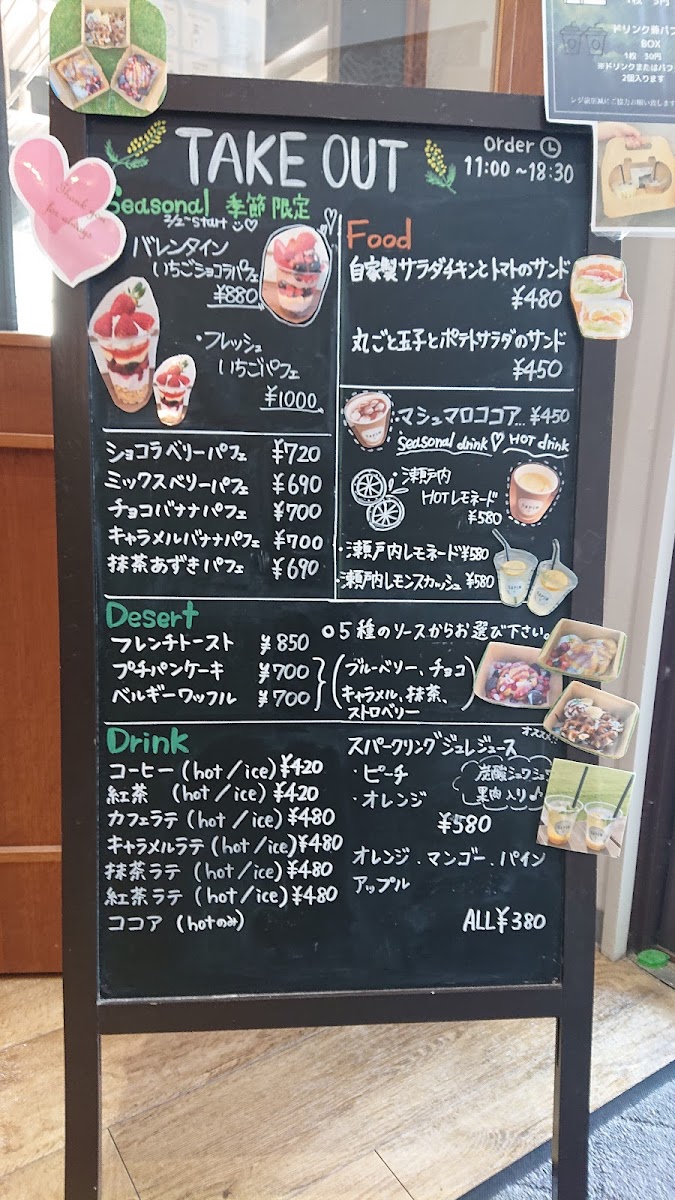 1枚 5円
ドリンク兼パフェ
BOX
1枚 30円
※ドリンクまたはパフ
2個入ります
レジ袋削減にご協力お願い致します
Thank you
for always
TAKE OUT
Order
11:00~18:30
Seasonal 季節限定
3/2~start
バレンタイン
いちごショコラパフェ
¥880
・フレッシュ
いちごパフェ
¥1000
ショコラベリーパフェ ¥720
ミックスベリーパフェ ¥690
チョコバナナパフェ ¥700
キャラメルバナナパフェ ¥700
抹茶あずきパフェ ¥690
Food
自家製サラダチキンとトマトのサンド
¥480
丸ごと玉子とポテトサラダのサンド
¥450
マシュマロココア... ¥450
Seasonal drink♡HOT drink
・瀬戸内
HOTレモネード
¥580
・瀬戸内レモネード¥580
・瀬戸内レモンスカッシュ ¥580
Desert
フレンチトースト ¥850
プチパンケーキ ¥700
ベルギーワッフル ¥700
○5種のソースからお選び下さい。
(ブルーベリー、チョコ
キャラメル、抹茶、
ストロベリー)
Drink
コーヒー(hot/ice)¥420
紅茶 (hot/ice)¥420
カフェラテ(hot/ice)¥480
キャラメルラテ(hot/ice)¥480
抹茶ラテ(hot/ice)¥480
紅茶ラテ(hot/ice)¥480
ココア (hotのみ)
オススメ!!
スパークリングジュレジュース
・ピーチ
・オレンジ
炭酸シュワシュワ
果肉入り♪
¥580
オレンジ、マンゴー、パイン
アップル
ALL¥380